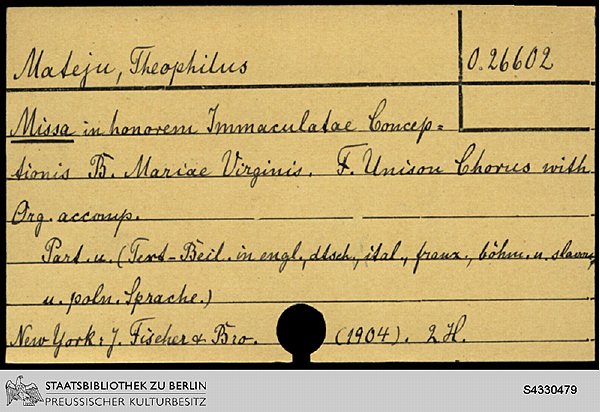 Mateju, Theophilus
O. 26602
Missa in honorem Immaculatae Concep=
tionis B. Mariae Virginis. F. Unison Chorus with
Org. accomp.
Part. u. (Text-Beil. in engl., dtsch., ital., franz., böhm. u. slawn.
u. poln. Sprache.)
New York: J. Fischer & Bro. (1904). 2 H.
STAATSBIBLIOTHEK ZU BERLIN
PREUSSISCHER KULTURBESITZ
S4330479